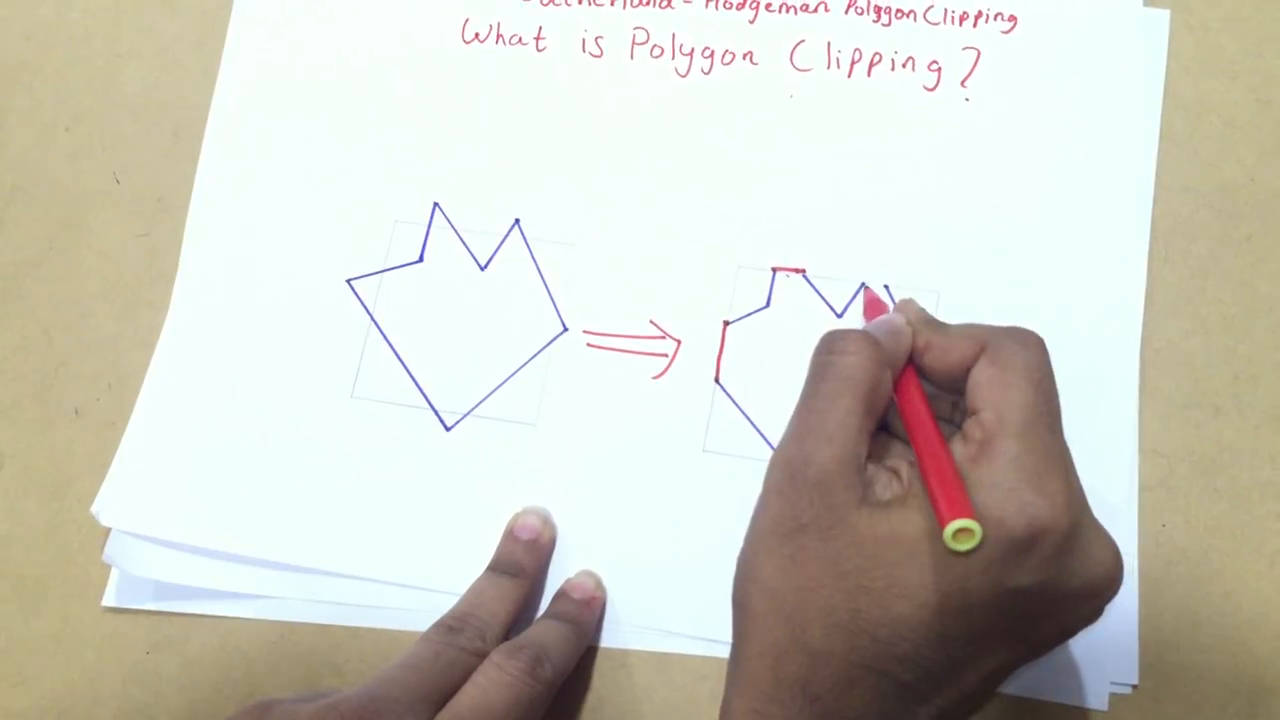 Hodgeman Polygon Clipping
What is Polygon Clipping?